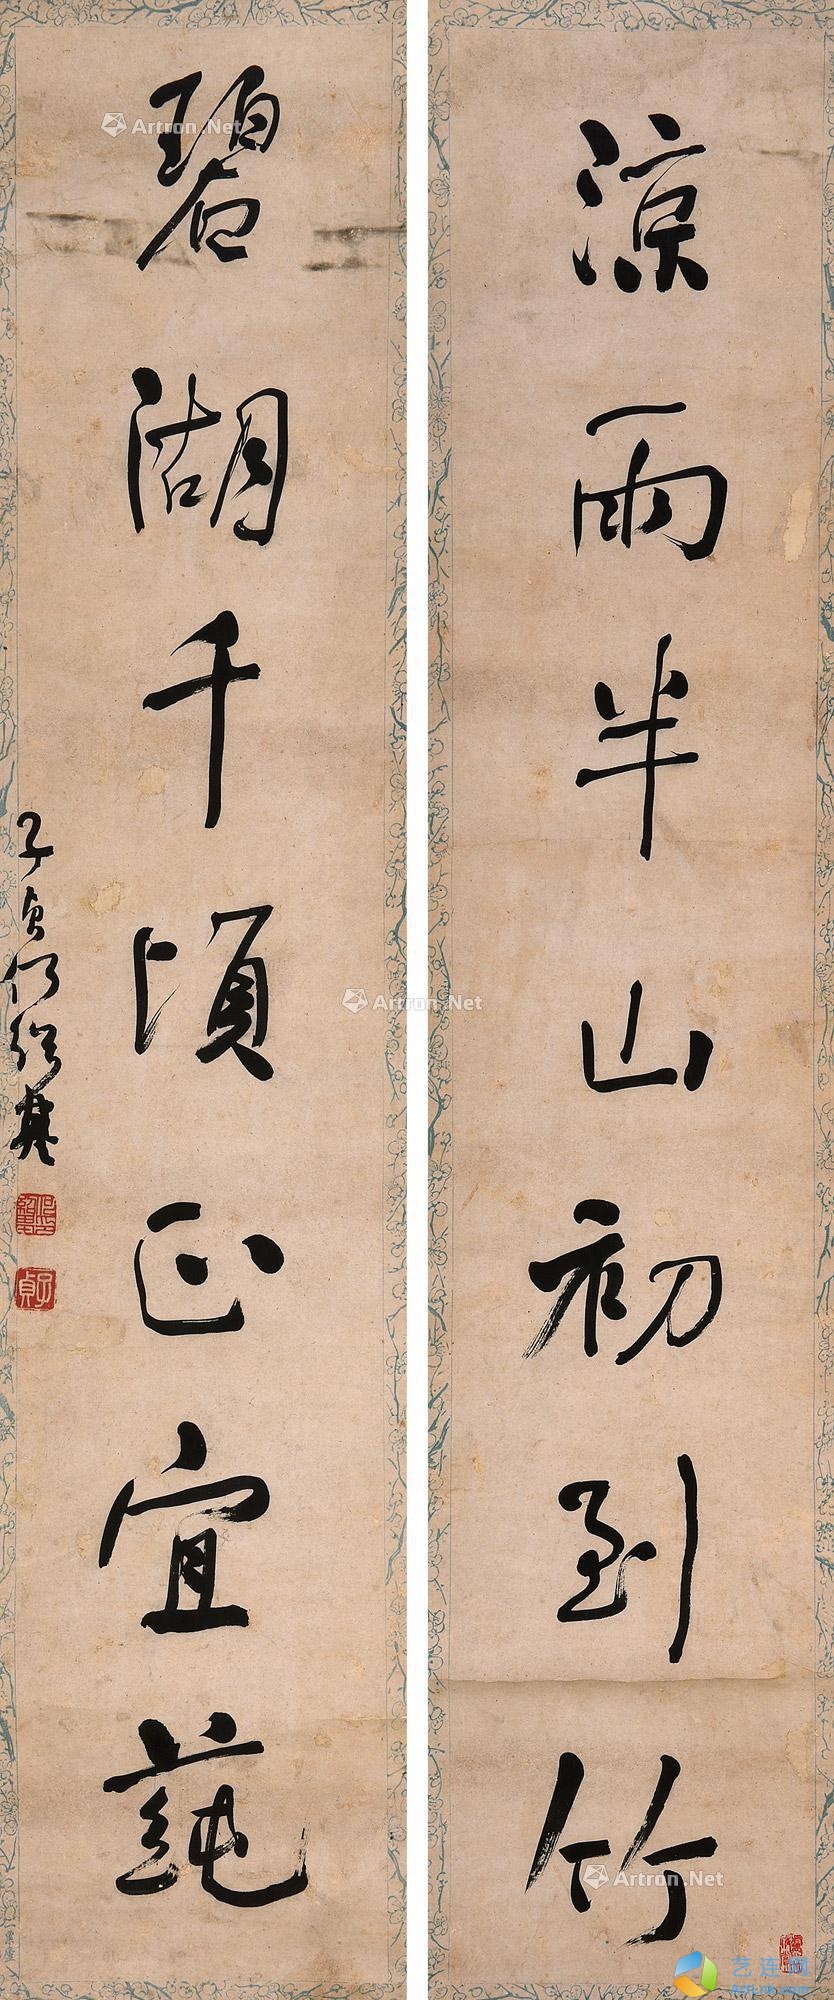 涼雨半山初到竹
碧湖千頃正宜蒓
子貞何紹基
子貞
Artron.Net
Artron.Net
Artron.Net
艺连网